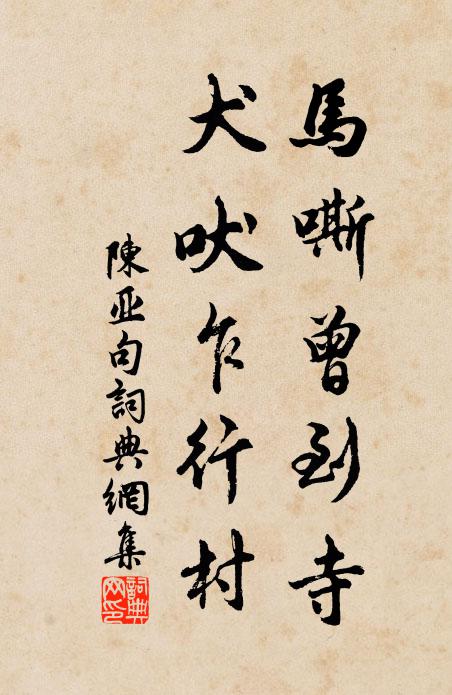 馬嘶曾到寺
犬吠乍行村
陳亚句詞典網集
詞典网印